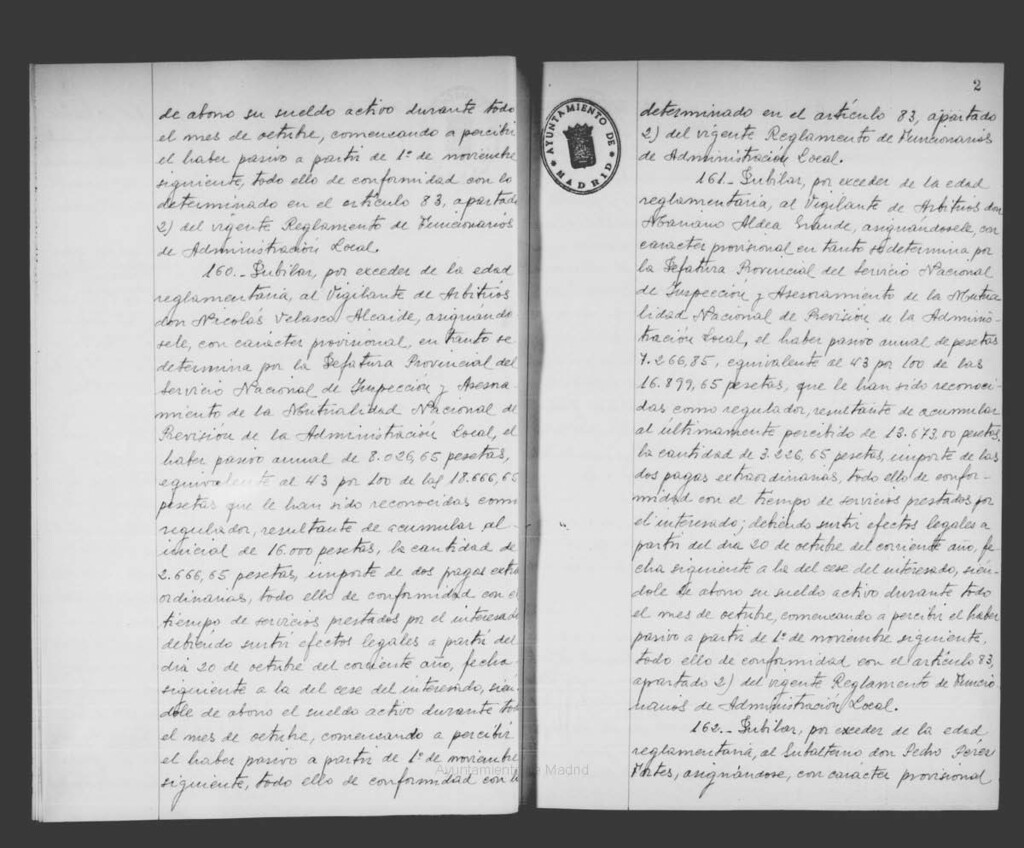 de abono su sueldo activo durante todo
el mes de octubre, comenzando a percibir
el haber pasivo a partir de 1º de noviembre
siguiente, todo ello de conformidad con lo
determinado en el artículo 83, apartado
2) del vigente Reglamento de Funcionarios
de Administración Local.
160.- Jubilar, por exceder de la edad
reglamentaria, al Vigilante de Arbitrios
don Nicolás Velasco Alcaide, asignando
sele, con carácter provisional, en tanto se
determina por la Jefatura Provincial del
Servicio Nacional de Inspección y Asesora
miento de la Mutualidad Nacional de
Previsión de la Administración Local, el
haber pasivo anual de 8.026,65 pesetas,
equivalente al 43 por 100 de las 18.666,65
pesetas que le han sido reconocidas como
regulador, resultante de acumular al
inicial de 16.000 pesetas, la cantidad de
2.666,65 pesetas, importe de dos pagas extra
ordinarias, todo ello de conformidad con el
tiempo de servicios prestados por el interesado
debiendo surtir efectos legales a partir del
día 20 de octubre del corriente año, fecha
siguiente a la del cese del interesado, sién
dole de abono el sueldo activo durante todo
el mes de octubre, comenzando a percibir
el haber pasivo a partir de 1º de noviembre
siguiente, todo ello de conformidad con lo
2
AYUNTAMIENTO DE
MADRID
determinado en el artículo 83, apartado
2) del vigente Reglamento de Funcionarios
de Administración Local.
161.- Jubilar, por exceder de la edad
reglamentaria, al Vigilante de Arbitrios don
Mariano Aldea Grande, asignándosele, con
carácter provisional en tanto se determina por
la Jefatura Provincial del Servicio Nacional
de Inspección y Asesoramiento de la Mutua
lidad Nacional de Previsión de la Adminis-
tración Local, el haber pasivo anual de pesetas
7.266,85, equivalente al 43 por 100 de las
16.899,65 pesetas, que le han sido reconoci
das como regulador, resultante de acumular
al últimamente percibido de 13.673,00 pesetas,
la cantidad de 3.226,65 pesetas, importe de las
dos pagas extraordinarias, todo ello de confor-
midad con el tiempo de servicios prestados por
el interesado; debiendo surtir efectos legales a
partir del día 20 de octubre del corriente año, fe
cha siguiente a la del cese del interesado, sién-
dole de abono su sueldo activo durante todo
el mes de octubre, comenzando a percibir el haber
pasivo a partir de 1º de noviembre siguiente,
todo ello de conformidad con el artículo 83,
apartado 2) del vigente Reglamento de Funcio-
narios de Administración Local.
162.- Jubilar, por exceder de la edad
reglamentaria, al Subalterno don Pedro
asignándose, con carácter provisional
Ayuntamiento de Madrid